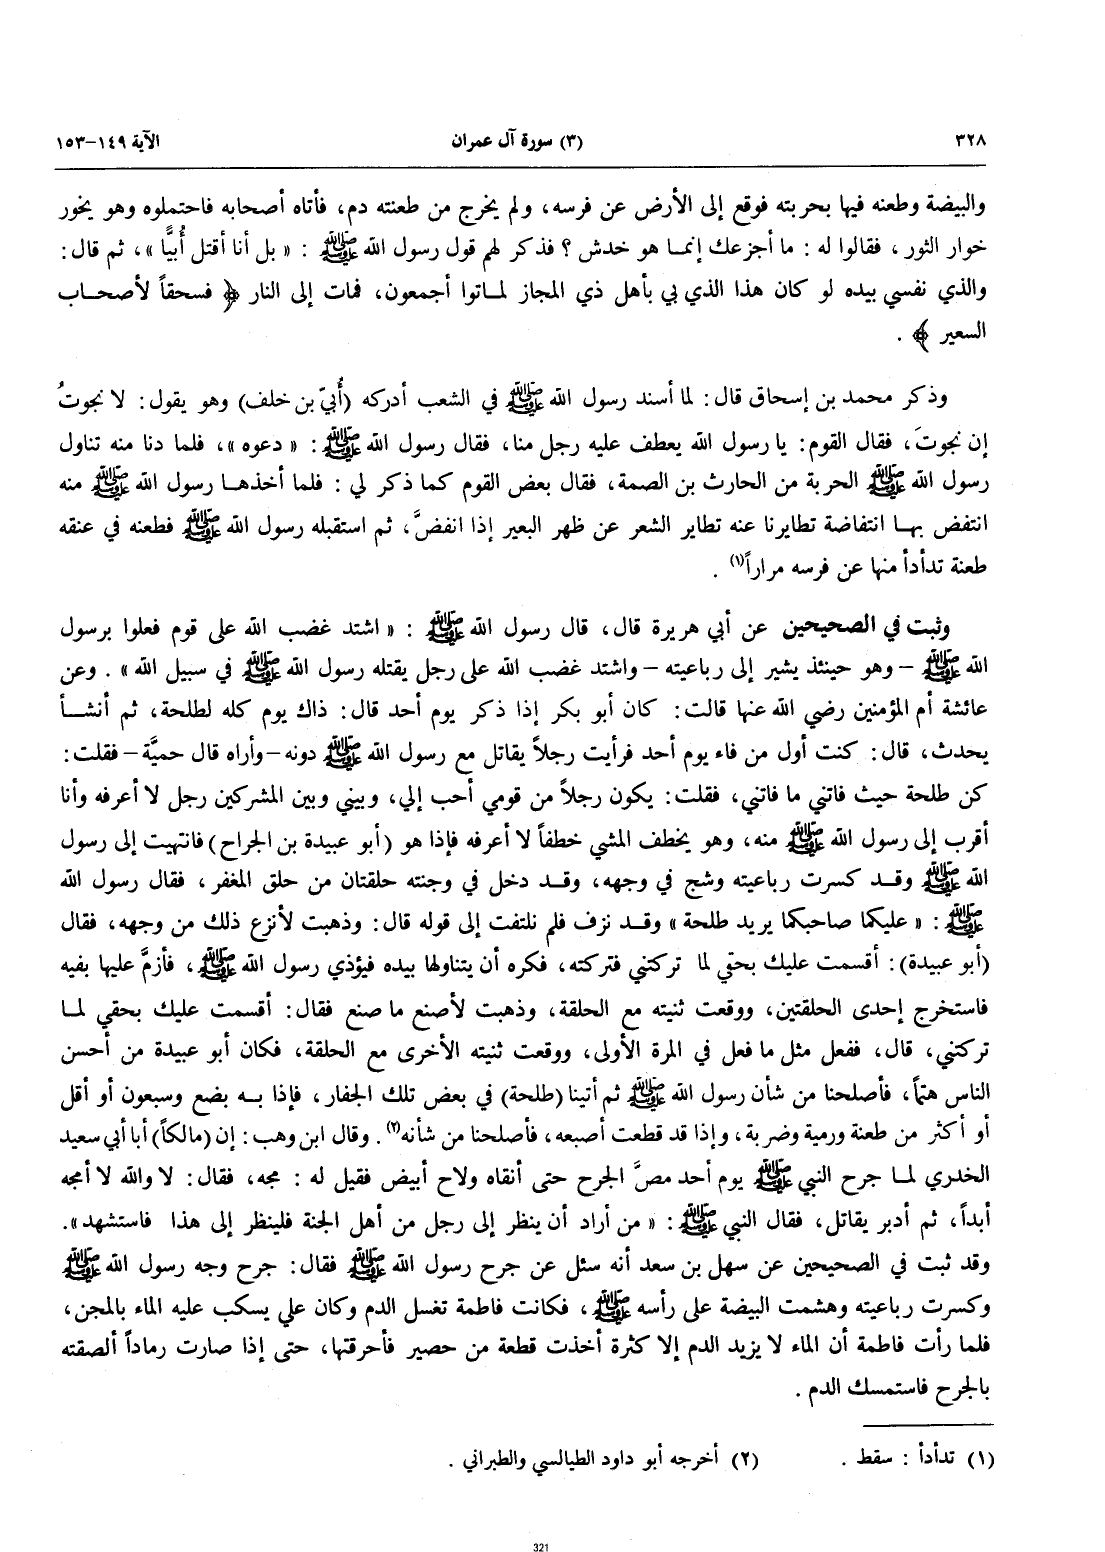 ٣٢٨ (٣) سورة آل عمران الآية ١٤٩-١٥٣
والبيضة وطعنه فيها بحربته فوقع إلى الأرض عن فرسه، ولم يخرج من طعنته دم، فأتاه أصحابه فاحتملوه وهو يخور
خوار الثور، فقالوا له : ما أجزعك إنمـا هو خدش ؟ فذكر لهم قول رسول الله ﷺ : « بل أنا أقتل أُبيًّا »، ثم قال :
والذي نفسي بيده لو كان هذا الذي بي بأهل ذي المجاز لمـاتوا أجمعون، فمات إلى النار ﴿ فسحقاً لأصحـاب
السعير ﴾ .
وذكر محمد بن إسحاق قال : لما أسند رسول الله ﷺ في الشعب أدركه (أُبيّ بن خلف) وهو يقول : لا نجوتُ
إن نجوتَ، فقال القوم : يا رسول الله يعطف عليه رجل منا، فقال رسول الله ﷺ : « دعوه »، فلما دنا منه تناول
رسول الله ﷺ الحربة من الحارث بن الصمة، فقال بعض القوم كما ذكر لي : فلما أخذهـا رسول الله ﷺ منه
انتفض بهـا انتفاضة تطايرنا عنه تطاير الشعر عن ظهر البعير إذا انفضَّ، ثم استقبله رسول الله ﷺ فطعنه في عنقه
طعنة تدأدأ منها عن فرسه مراراً(١) .
وثبت في الصحيحين عن أبي هريرة قال، قال رسول الله ﷺ : « اشتد غضب الله على قوم فعلوا برسول
الله ﷺ – وهو حينئذ يشير إلى رباعيته – واشتد غضب الله على رجل يقتله رسول الله ﷺ في سبيل الله » . وعن
عائشة أم المؤمنين رضي الله عنها قالت : كان أبو بكر إذا ذكر يوم أحد قال : ذاك يوم كله لطلحة، ثم أنشـأ
يحدث، قال : كنت أول من فاء يوم أحد فرأيت رجلاً يقاتل مع رسول الله ﷺ دونه – وأراه قال حميَّة – فقلت :
كن طلحة حيث فاتني ما فاتني، فقلت : يكون رجلاً من قومي أحب إلي، وبيني وبين المشركين رجل لا أعرفه وأنا
أقرب إلى رسول الله ﷺ منه، وهو يخطف المشي خطفاً لا أعرفه فإذا هو (أبو عبيدة بن الجراح) فانتهيت إلى رسول
الله ﷺ وقـد كسرت رباعيته وشج في وجهه، وقـد دخل في وجنته حلقتان من حلق المغفر، فقال رسول الله
ﷺ : « عليكما صاحبكما يريد طلحة » وقـد نزف فلم نلتفت إلى قوله قال : وذهبت لأنزع ذلك من وجهه، فقال
(أبو عبيدة) : أقسمت عليك بحقي لما تركتني فتركته، فكره أن يتناولها بيده فيؤذي رسول الله ﷺ، فأزمَّ عليها بفيه
فاستخرج إحدى الحلقتين، ووقعت ثنيته مع الحلقة، وذهبت لأصنع ما صنع فقال : أقسمت عليك بحقي لمـا
تركتني، قال، ففعل مثل ما فعل في المرة الأولى، ووقعت ثنيته الأخرى مع الحلقة، فكان أبو عبيدة من أحسن
الناس هتماً، فأصلحنا من شأن رسول الله ﷺ ثم أتينا (طلحة) في بعض تلك الجفار، فإذا بـه بضع وسبعون أو أقل
أو أكثر من طعنة ورمية وضربة، وإذا قد قطعت أصبعه، فأصلحنا من شأنه(٢) . وقال ابن وهب : إن (مالكاً) أبا أبي سعيد
الخدري لمـا جرح النبي ﷺ يوم أحد مصَّ الجرح حتى أنقاه ولاح أبيض فقيل له : مجه، فقال : لا والله لا أمجه
أبداً، ثم أدبر يقاتل، فقال النبي ﷺ : « من أراد أن ينظر إلى رجل من أهل الجنة فلينظر إلى هذا فاستشهد » .
وقد ثبت في الصحيحين عن سهل بن سعد أنه سئل عن جرح رسول الله ﷺ فقال : جرح وجه رسول الله ﷺ
وكسرت رباعيته وهشمت البيضة على رأسه ﷺ، فكانت فاطمة تغسل الدم وكان علي يسكب عليه الماء بالمجن،
فلما رأت فاطمة أن الماء لا يزيد الدم إلا كثرة أخذت قطعة من حصير فأحرقتها، حتى إذا صارت رماداً ألصقته
بالجرح فاستمسك الدم .
(١) تدأدأ : سقط . (٢) أخرجه أبو داود الطيالسي والطبراني .
321